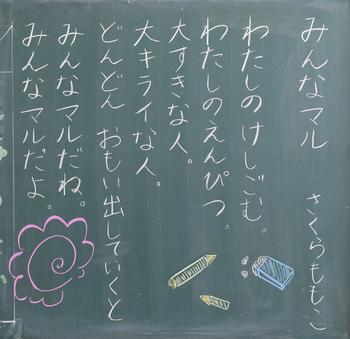 みんなマル さくらももこ
わたしのけしごむ。
わたしのえんぴつ。
大すきな人。
大キライな人。
どんどん おもい出していくと
みんなマルだね。
みんなマルだよ。